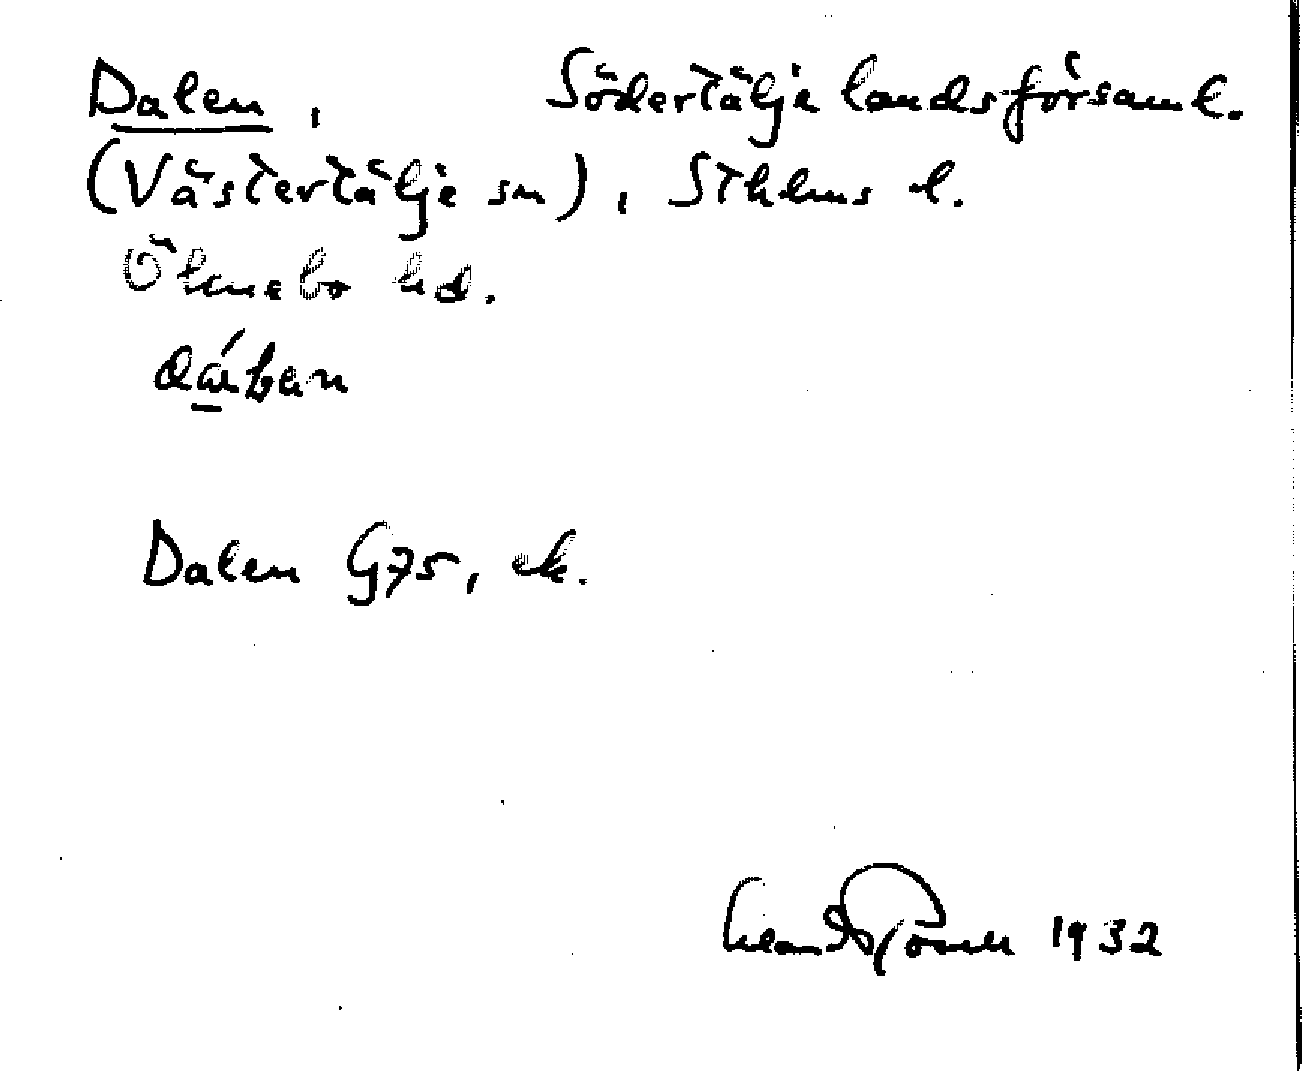 Dalen, Södertälje landsförsaml.
(Västertälje sn), Sthlms l.
Ölmebo hd.
Dalen G75, ek.
1932